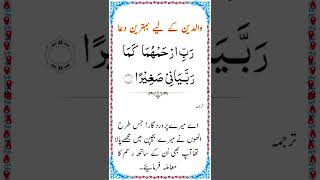 والدین کے لیے بہترین دعا
رَبِّ ارْحَمْهُمَا كَمَا
رَبَّيَانِيْ صَغِيْرًا
ترجمہ
اے میرے پروردگار! جس طرح
انھوں نے میرے بچپن میں مجھے پالا
تھا آپ بھی اُن کے ساتھ رحم کا
معاملہ فرمائیے۔
ترجمہ